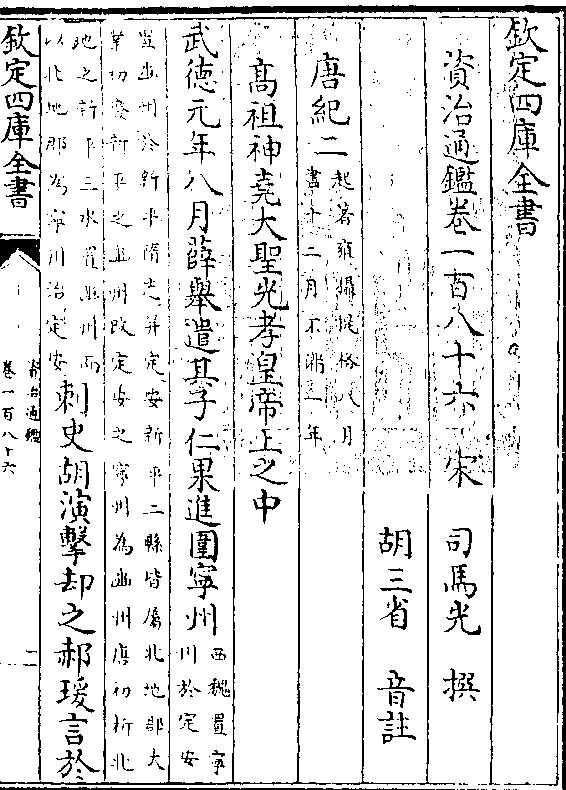 欽定四庫全書
資治通鑑卷一百八十六 宋 司馬光 撰
胡三省 音註
唐紀二 起著雍攝提格八月
盡十二月不滿一年
高祖神堯大聖光孝皇帝上之中
武德元年八月薛舉遣其子仁果進圍寧州 西魏置寧
州於定安
置豳州於新平隋志并定安新平二縣皆屬北地郡大
業初廢新平之豳州改定安之寧州為豳州唐初析北
地之新平三水置豳州而
以北地郡為寧州治定安 刺史胡演擊却之郝瑗言於
欽定四庫全書
資治通鑑
卷一百八十六
二